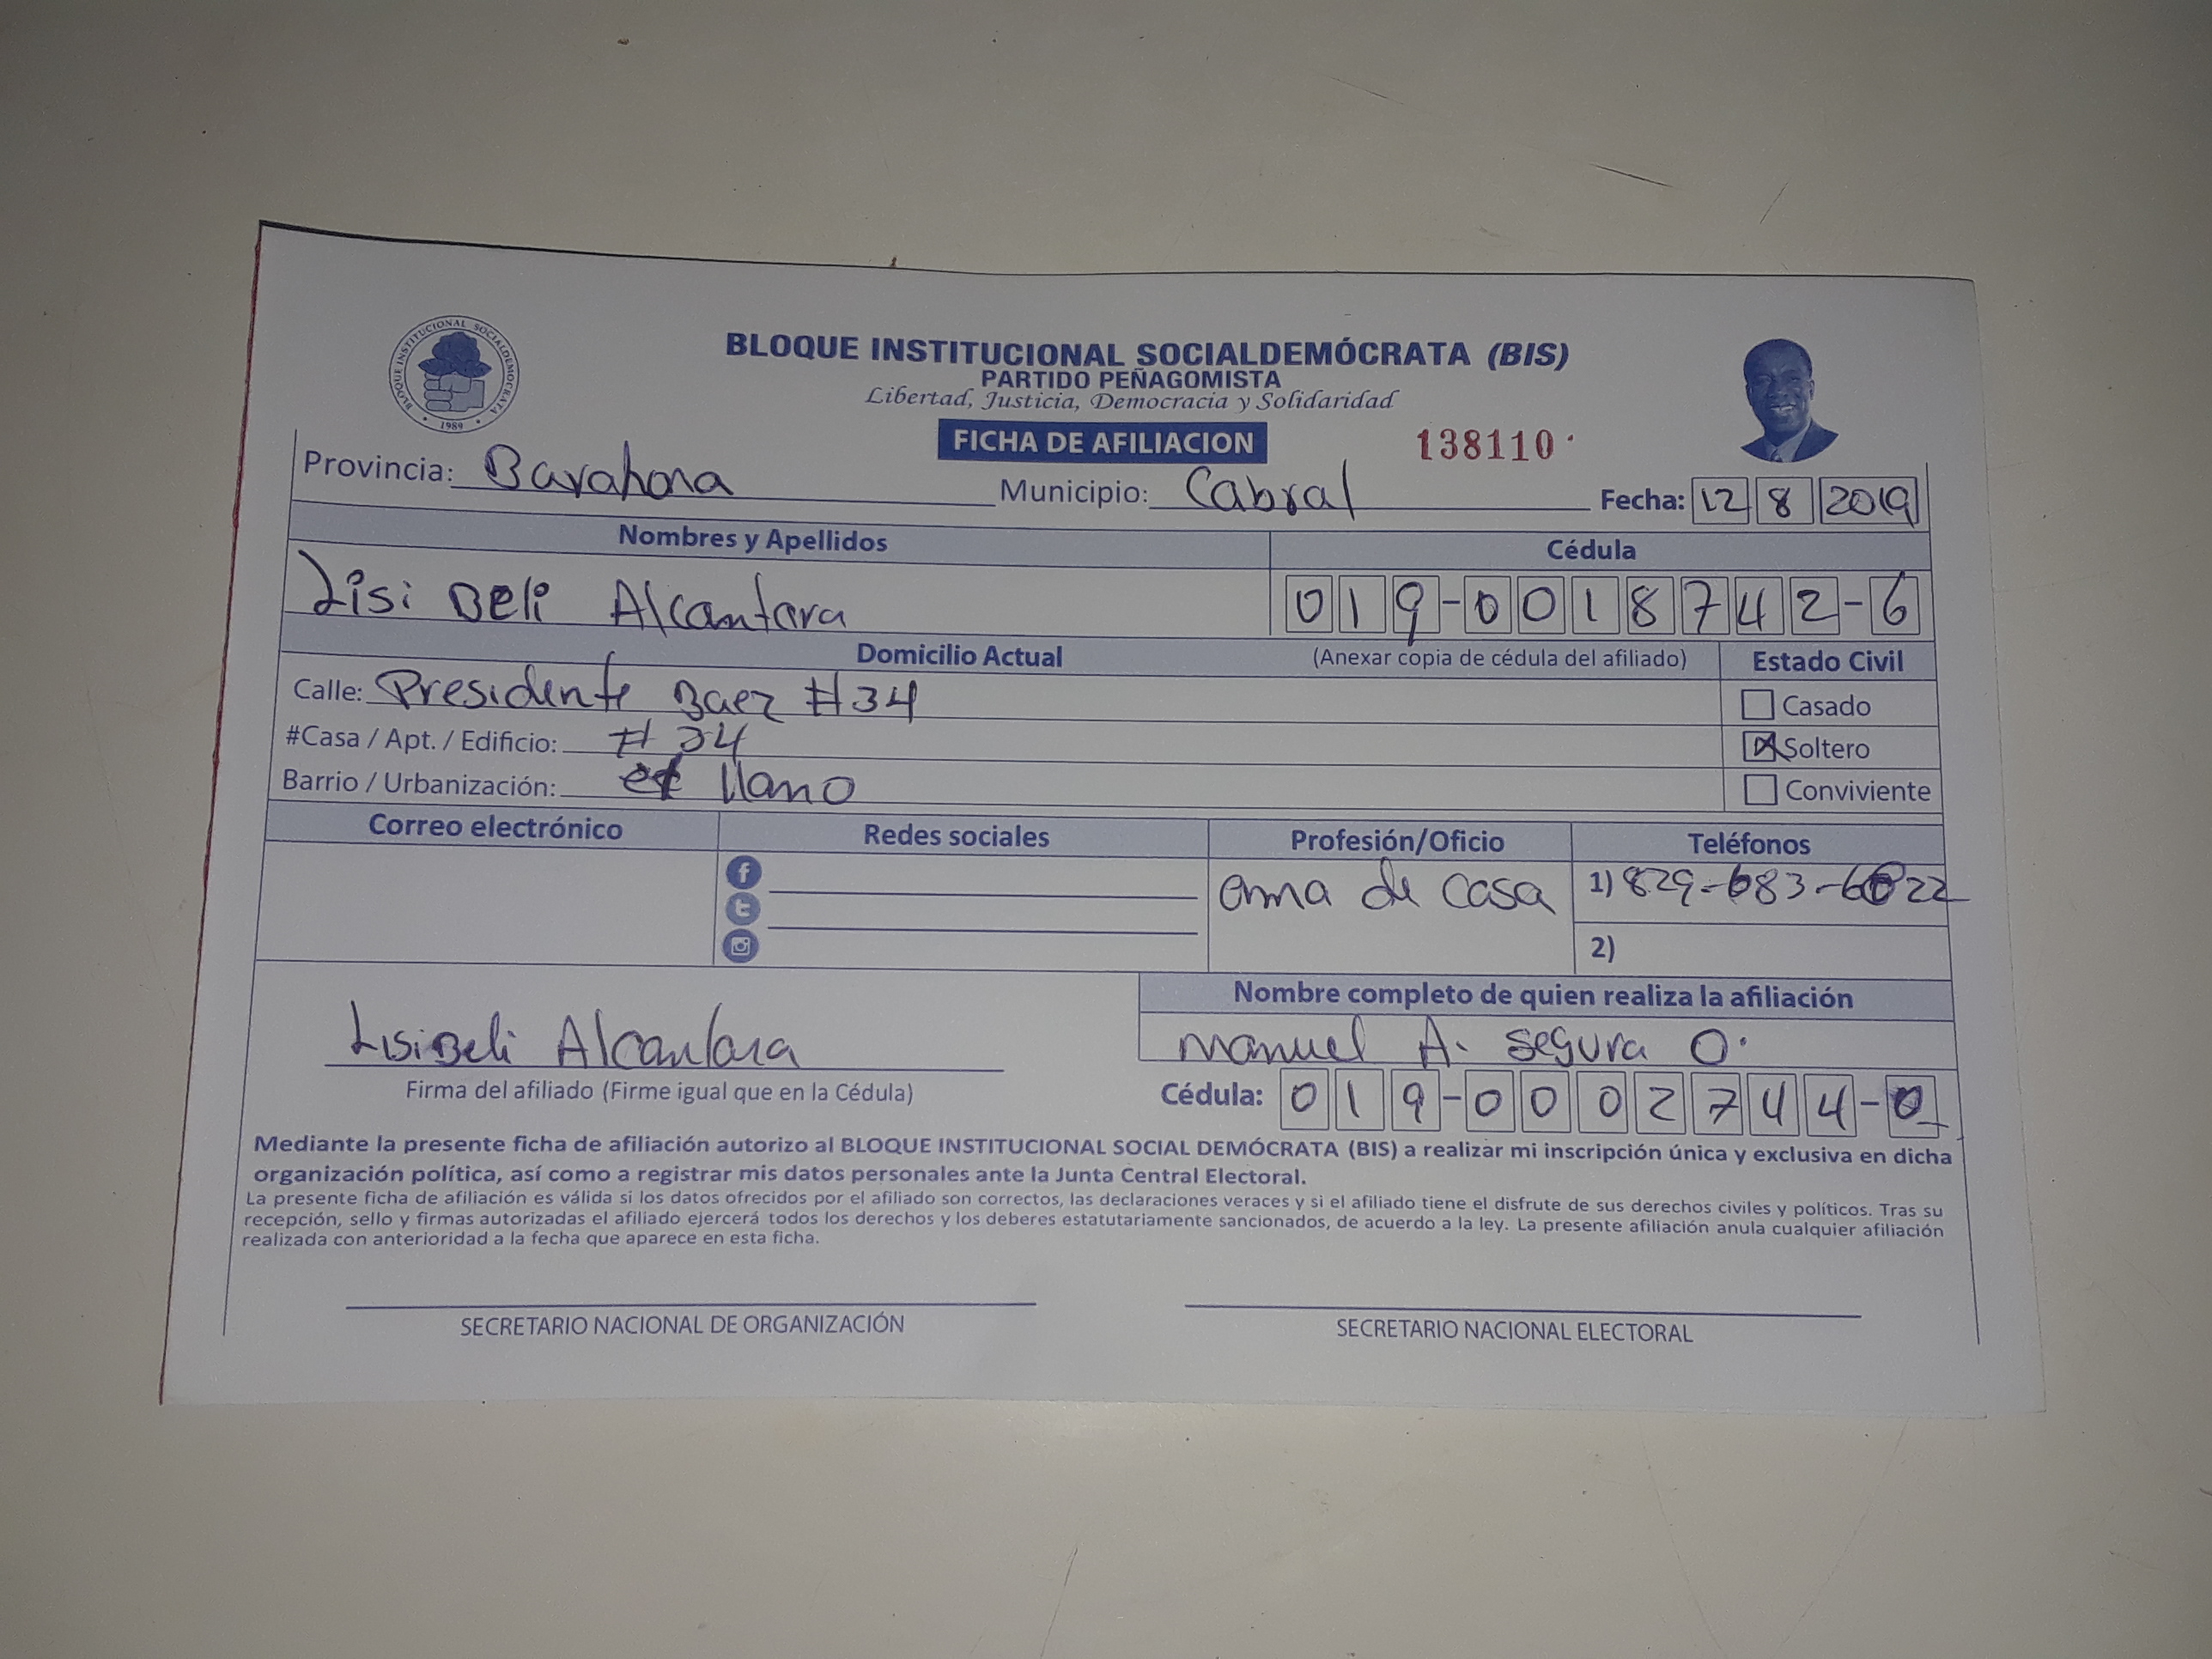 BLOQUE INSTITUCIONAL SOCIALDEMOCRATA
1989
BLOQUE INSTITUCIONAL SOCIALDEMÓCRATA (BIS)
PARTIDO PEÑAGOMISTA
Libertad, Justicia, Democracia y Solidaridad
FICHA DE AFILIACION 138110
Provincia: Barahona Municipio: Cabral Fecha: 12 8 2019
Nombres y Apellidos Cédula
Lisi Beli Alcantara 019-0018742-6
Domicilio Actual (Anexar copia de cédula del afiliado) Estado Civil
Calle: Presidente Baez #34 Casado
#Casa / Apt. / Edificio: # 34 Soltero
Barrio / Urbanización: el llano Conviviente
Correo electrónico Redes sociales Profesión/Oficio Teléfonos
ama de casa 1) 829-683-6022
2)
Nombre completo de quien realiza la afiliación
LisiBeli Alcantara manuel A. Segura O.
Firma del afiliado (Firme igual que en la Cédula) Cédula: 019-0002744-0
Mediante la presente ficha de afiliación autorizo al BLOQUE INSTITUCIONAL SOCIAL DEMÓCRATA (BIS) a realizar mi inscripción única y exclusiva en dicha
organización política, así como a registrar mis datos personales ante la Junta Central Electoral.
La presente ficha de afiliación es válida si los datos ofrecidos por el afiliado son correctos, las declaraciones veraces y si el afiliado tiene el disfrute de sus derechos civiles y políticos. Tras su
recepción, sello y firmas autorizadas el afiliado ejercerá todos los derechos y los deberes estatutariamente sancionados, de acuerdo a la ley. La presente afiliación anula cualquier afiliación
realizada con anterioridad a la fecha que aparece en esta ficha.
SECRETARIO NACIONAL DE ORGANIZACIÓN SECRETARIO NACIONAL ELECTORAL